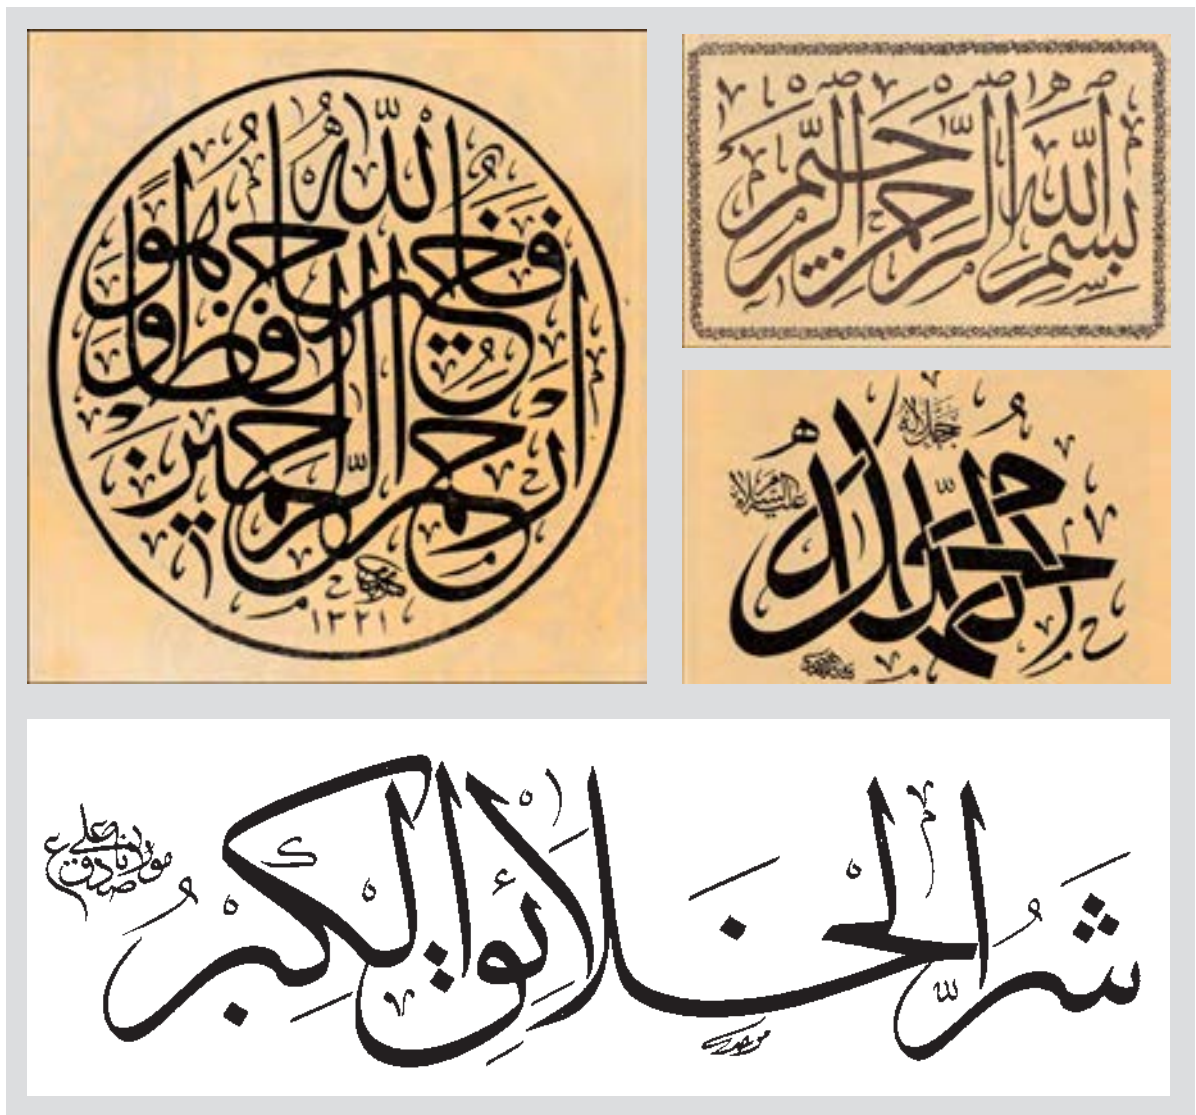 فالله خير حافظا وهو
ارحم الراحمين
١٣٢١
بسم الله الرحمن الرحيم
الله
جل جلاله
محمد
عليه السلام
شَرُّ الخَلَائِقِ الْكِبْرُ